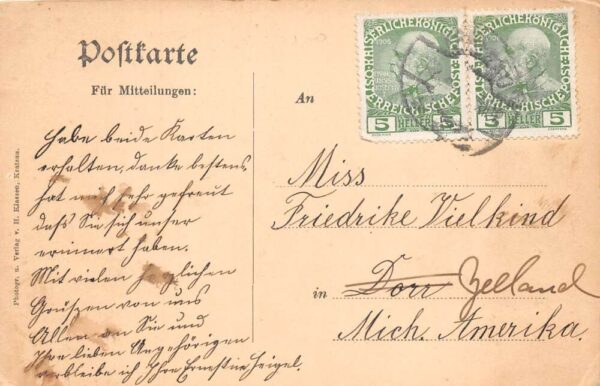 Postkarte
Für Mitteilungen:
Habe beide Karten
erhalten, danke bestens,
hat mich sehr gefreut
daß Sie sich unser
erinnert haben.
Mit vielen herzlichen
Grüßen von uns
Allen an Sie und
Ihre lieben Angehörigen
verbleibe ich Ihre Ernestine Geigel.
Photogr. u. Verlag v. H. Klassen, Kratzau.
An
Miss
Friedrike Vielkind
in Dorr Zeeland
Mich. Amerika.
KAISERLICHE KÖNIGLICHE ÖSTERREICHISCHE
1908
5 HELLER 5
KAISERLICHE KÖNIGLICHE ÖSTERREICHISCHE
5 HELLER 5